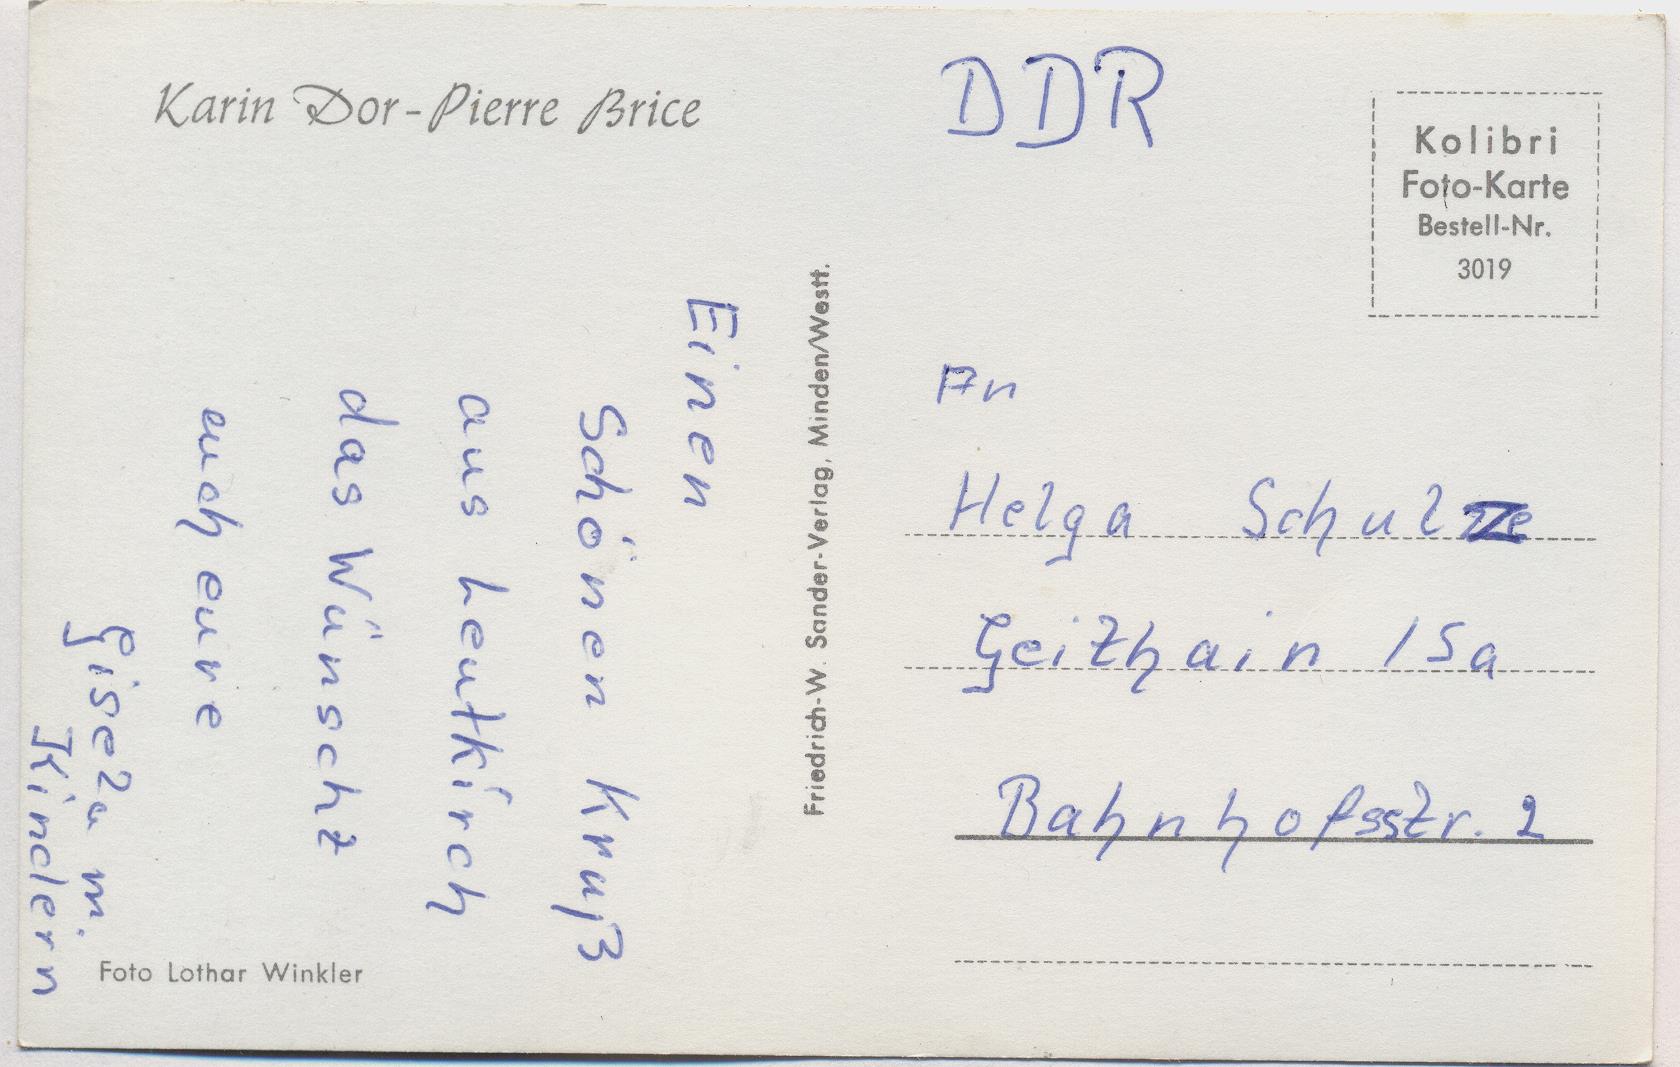 Karin Dor-Pierre Brice
Einen
Schönen Kruß
aus Leutkirch
das Wünscht
euch eure
Gisela m.
Kindern
Foto Lothar Winkler
Friedrich-W. Sander-Verlag, Minden/Westf.
DDR
Kolibri
Foto-Karte
Bestell-Nr.
3019
An
Helga Schulze
Geithain /Sa
Bahnhofsstr. 2